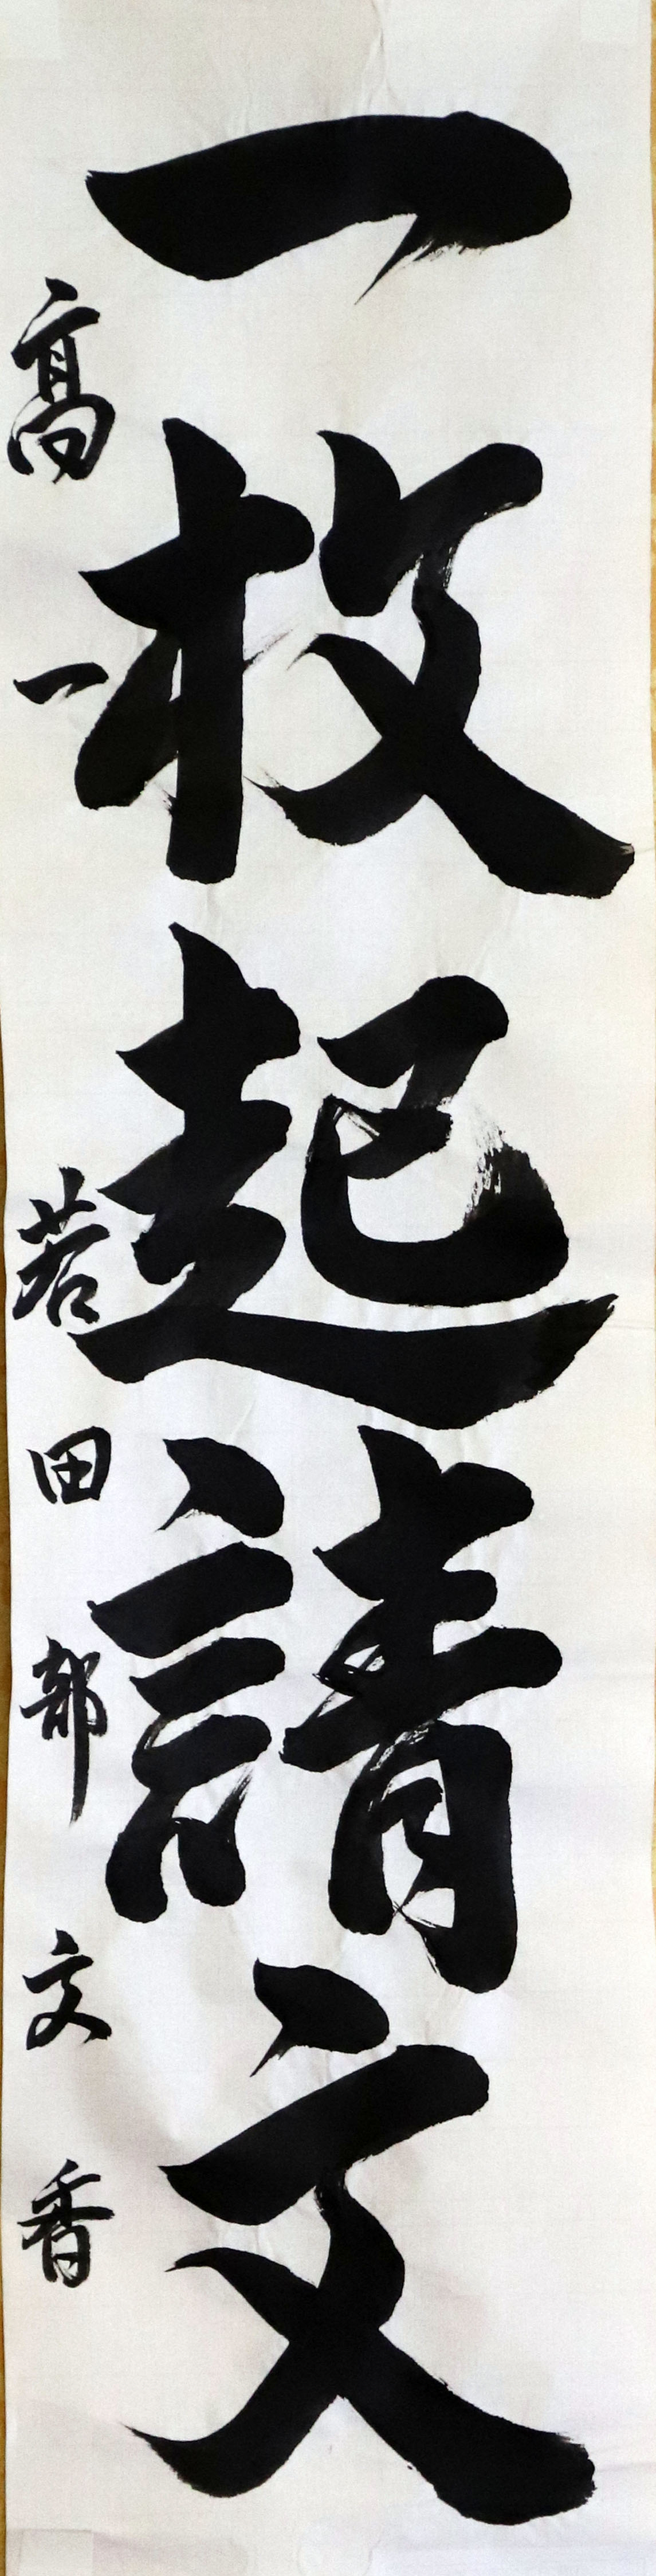 一枚起請文
高一 若田部文香